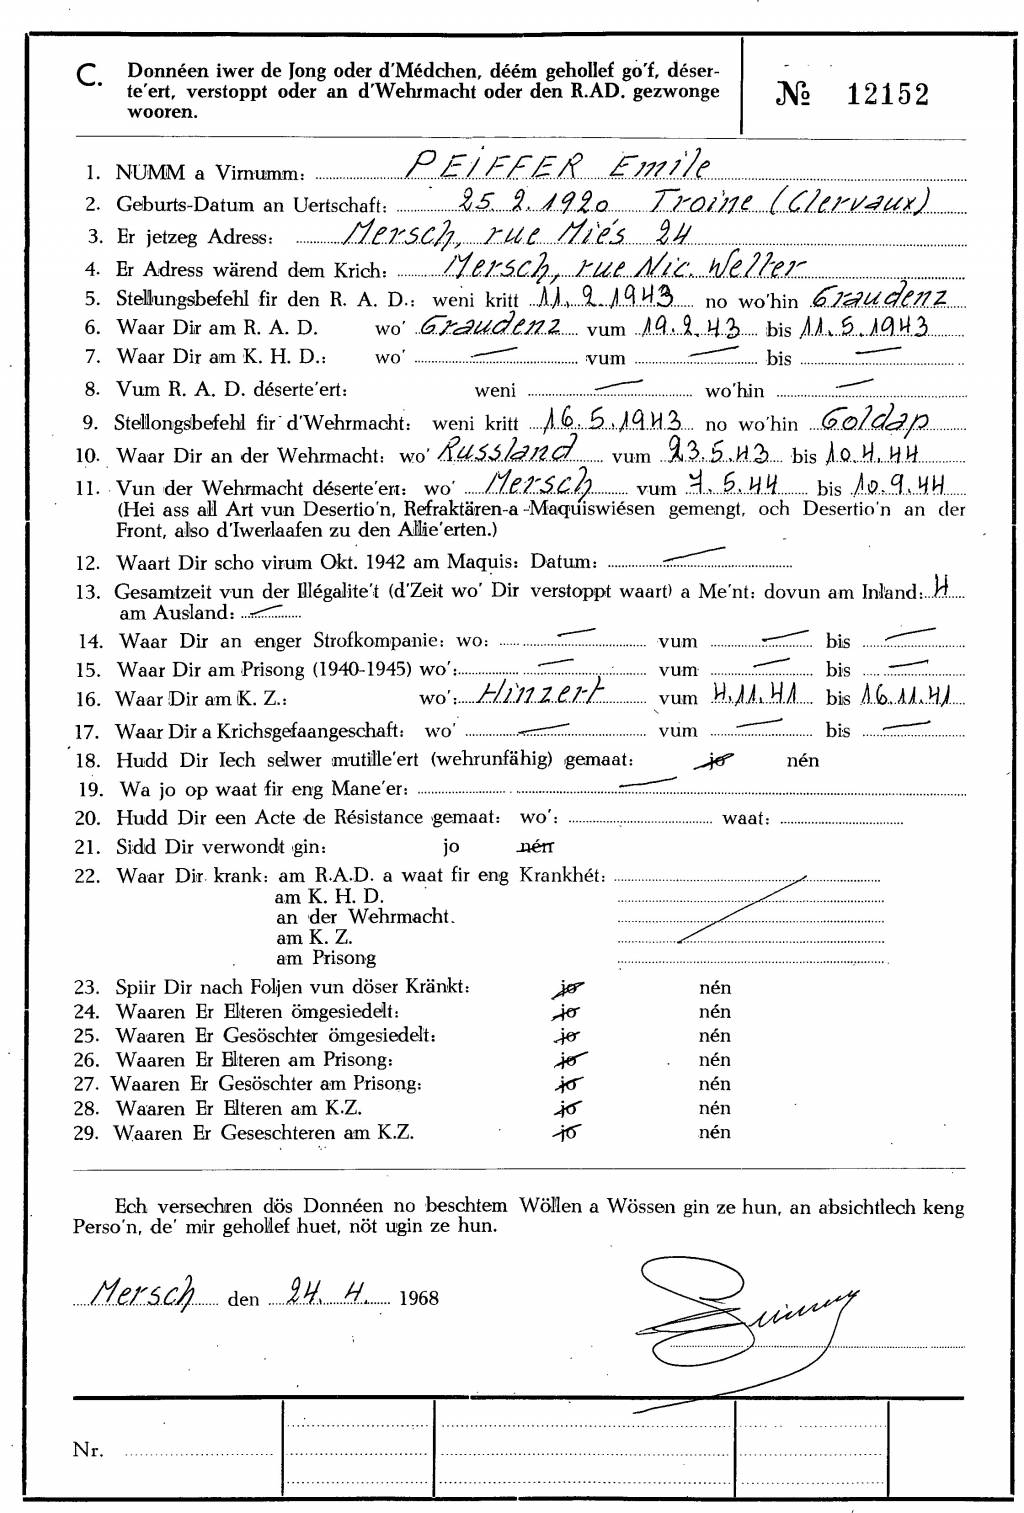 C. Donnéen iwer de Jong oder d'Médchen, déém gehollef go'f, déser-
te'ert, verstoppt oder an d'Wehrmacht oder den R.AD. gezwonge
wooren.
№ 12152
1. NUMM a Virnumm: PEIFFER Emile
2. Geburts-Datum an Uertschaft: 25.2.1920 Troine (Clervaux)
3. Er jetzeg Adress: Mersch, rue Miés 24
4. Er Adress wärend dem Krich: Mersch, rue Nic. Welter
5. Stellungsbefehl fir den R. A. D.: weni kritt 11.2.1943 no wo'hin Graudenz
6. Waar Dir am R. A. D. wo' Graudenz vum 19.2.43 bis 11.5.1943
7. Waar Dir am K. H. D.: wo' — vum — bis —
8. Vum R. A. D. déserte'ert: weni — wo'hin —
9. Stellongsbefehl fir d'Wehrmacht: weni kritt 16.5.1943 no wo'hin Goldap
10. Waar Dir an der Wehrmacht: wo' Russland vum 23.5.43 bis 10.4.44
11. Vun der Wehrmacht déserte'ert: wo' Mersch vum 7.5.44 bis 10.9.44
(Hei ass all Art vun Desertio'n, Refraktären-a -Maquiswiésen gemengt, och Desertio'n an der
Front, also d'Iwerlaafen zu den Allie'erten.)
12. Waart Dir scho virum Okt. 1942 am Maquis: Datum: —
13. Gesamtzeit vun der Illégalite't (d'Zeit wo' Dir verstoppt waart) a Me'nt: dovun am Inland: 4
am Ausland: —
14. Waar Dir an enger Strofkompanie: wo: — vum — bis —
15. Waar Dir am Prisong (1940-1945) wo': — vum — bis —
16. Waar Dir am K. Z.: wo': Hinzert vum 4.11.41 bis 16.11.41
17. Waar Dir a Krichsgefaangeschaft: wo' — vum — bis —
18. Hudd Dir Iech selwer mutille'ert (wehrunfähig) gemaat: jo nén
19. Wa jo op waat fir eng Mane'er: —
20. Hudd Dir een Acte de Résistance gemaat: wo': waat:
21. Sidd Dir verwondt gin: jo nén
22. Waar Dir krank: am R.A.D. a waat fir eng Krankhét:
am K. H. D.
an der Wehrmacht.
am K. Z.
am Prisong
23. Spiir Dir nach Foljen vun döser Kränkt: jo nén
24. Waaren Er Elteren ömgesiedelt: jo nén
25. Waaren Er Gesöschter ömgesiedelt: jo nén
26. Waaren Er Elteren am Prisong: jo nén
27. Waaren Er Gesöschter am Prisong: jo nén
28. Waaren Er Elteren am K.Z. jo nén
29. Waaren Er Geseschteren am K.Z. jo nén
Ech versechren dös Donnéen no beschtem Wöllen a Wössen gin ze hun, an absichtlech keng
Perso'n, de' mir gehollef huet, nöt ugin ze hun.
Mersch den 24.4. 1968
Nr.